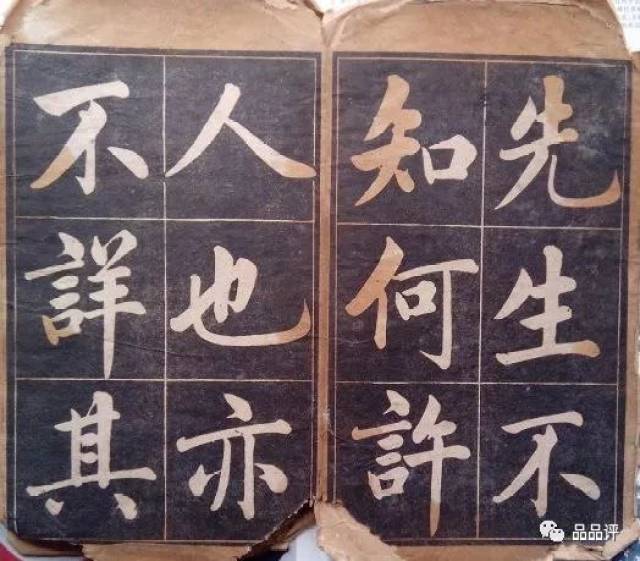 先生不
知何許
人也亦
不詳其
品品评